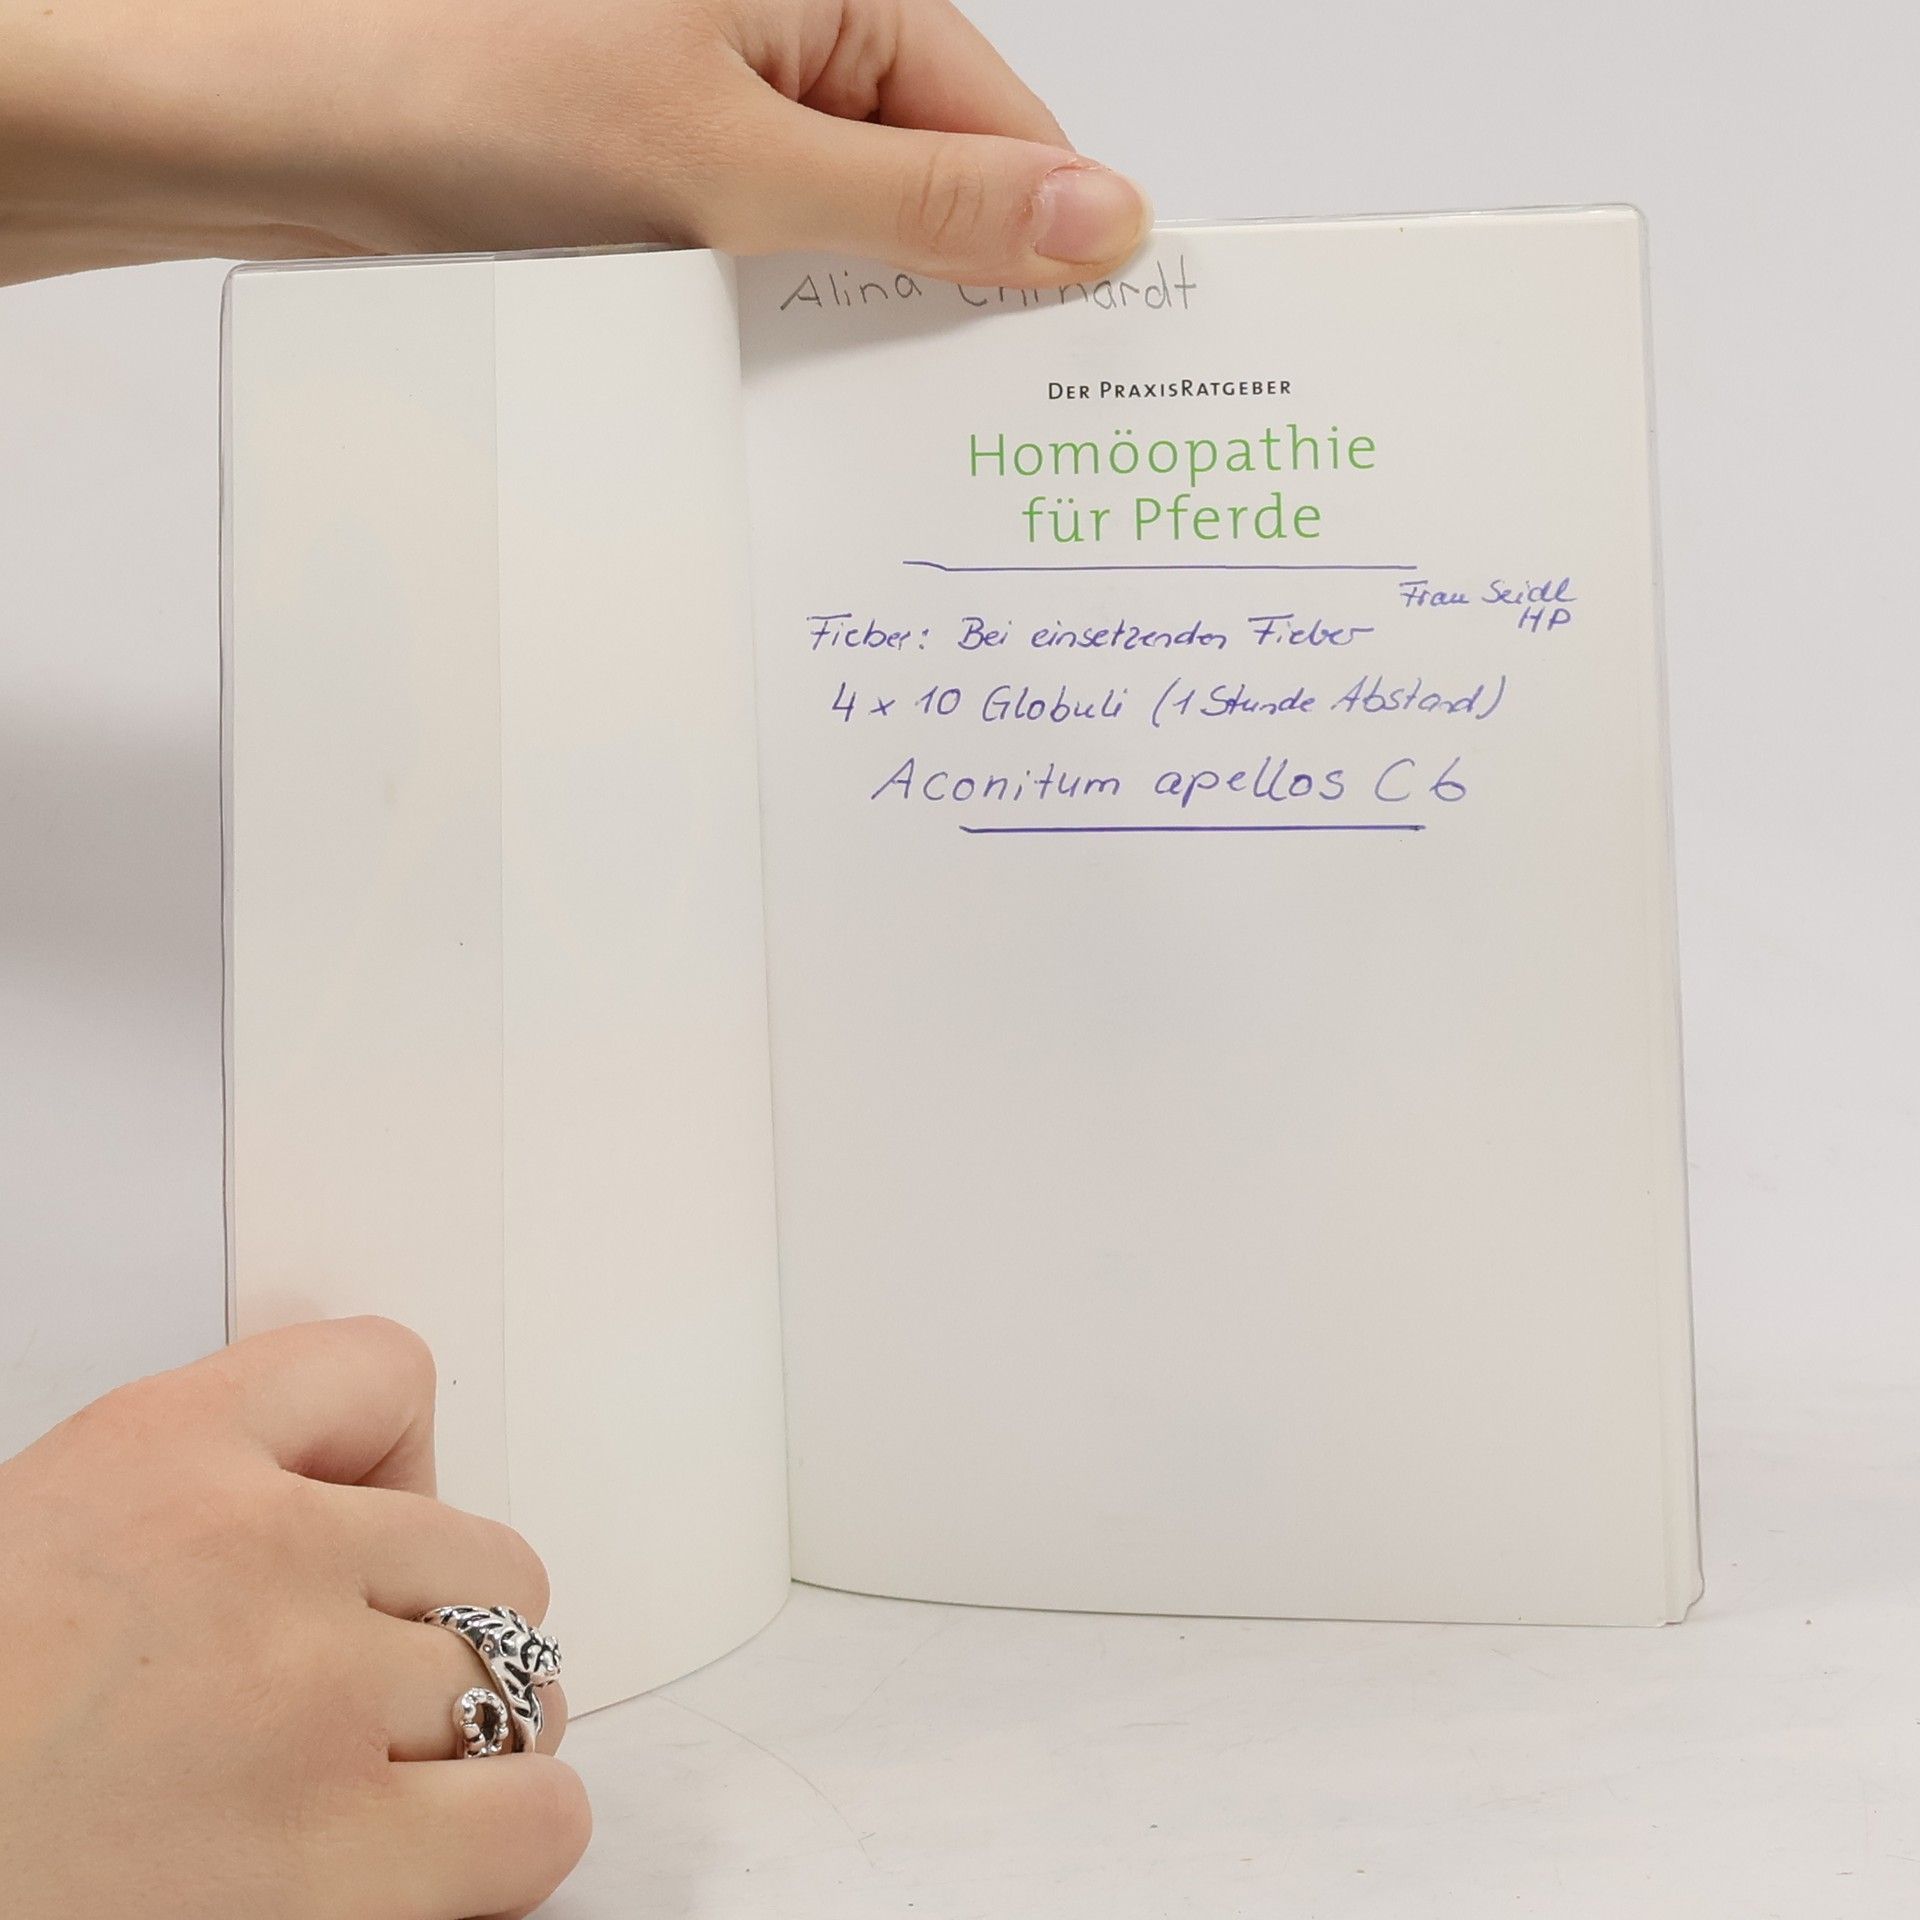 Alina Ehrhardt
DER PRAXISRATGEBER
Homöopathie
für Pferde
Frau Seidl
HP
Fieber: Bei einsetzenden Fieber
4 x 10 Globuli (1 Stunde Abstand)
Aconitum apellos C6